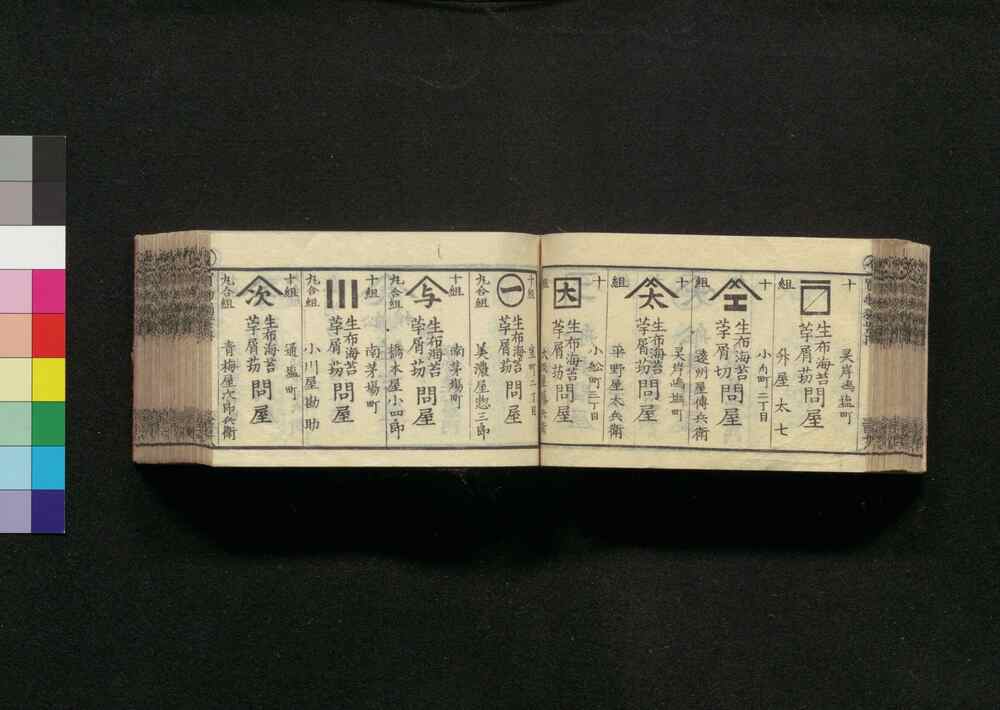 十組
霊岸嶋塩町
生布海苔
苧屑苆
問屋
升屋太七
十組
小舟町二丁目
エ
生布海苔
苧屑切
問屋
遠州屋傳兵衛
十組
霊岸嶋塩町
太
生布海苔
苧屑苆
問屋
平野屋太兵衛
十組
小舩町二丁目
大
生布海苔
苧屑苆
問屋
十組
室町二丁目
一
生布海苔
苧屑苆
問屋
九合組
美濃屋惣三郎
十組
南茅場町
与
生布海苔
苧屑苆
問屋
九合組
橋本屋小四郎
十組
南茅場町
生布海苔
苧屑苆
問屋
九合組
小川屋勘助
十組
通塩町
次
生布海苔
苧屑苆
問屋
九合組
青梅屋次郎兵衛